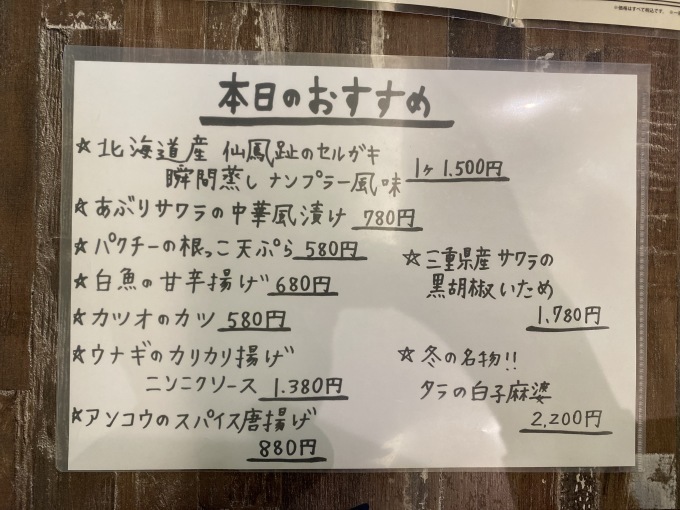 ※価格はすべて税込です。
本日のおすすめ
☆北海道産 仙鳳趾のセルガキ
瞬間蒸し ナンプラー風味 1ヶ 1.500円
☆あぶりサワラの中華風漬け 780円
☆パクチーの根っこ天ぷら 580円
☆白魚の甘辛揚げ 680円
☆カツオのカツ 580円
☆ウナギのカリカリ揚げ
ニンニクソース 1.380円
☆アンコウのスパイス唐揚げ
880円
☆三重県産サワラの
黒胡椒いため
1.780円
☆冬の名物!!
タラの白子麻婆
2.200円